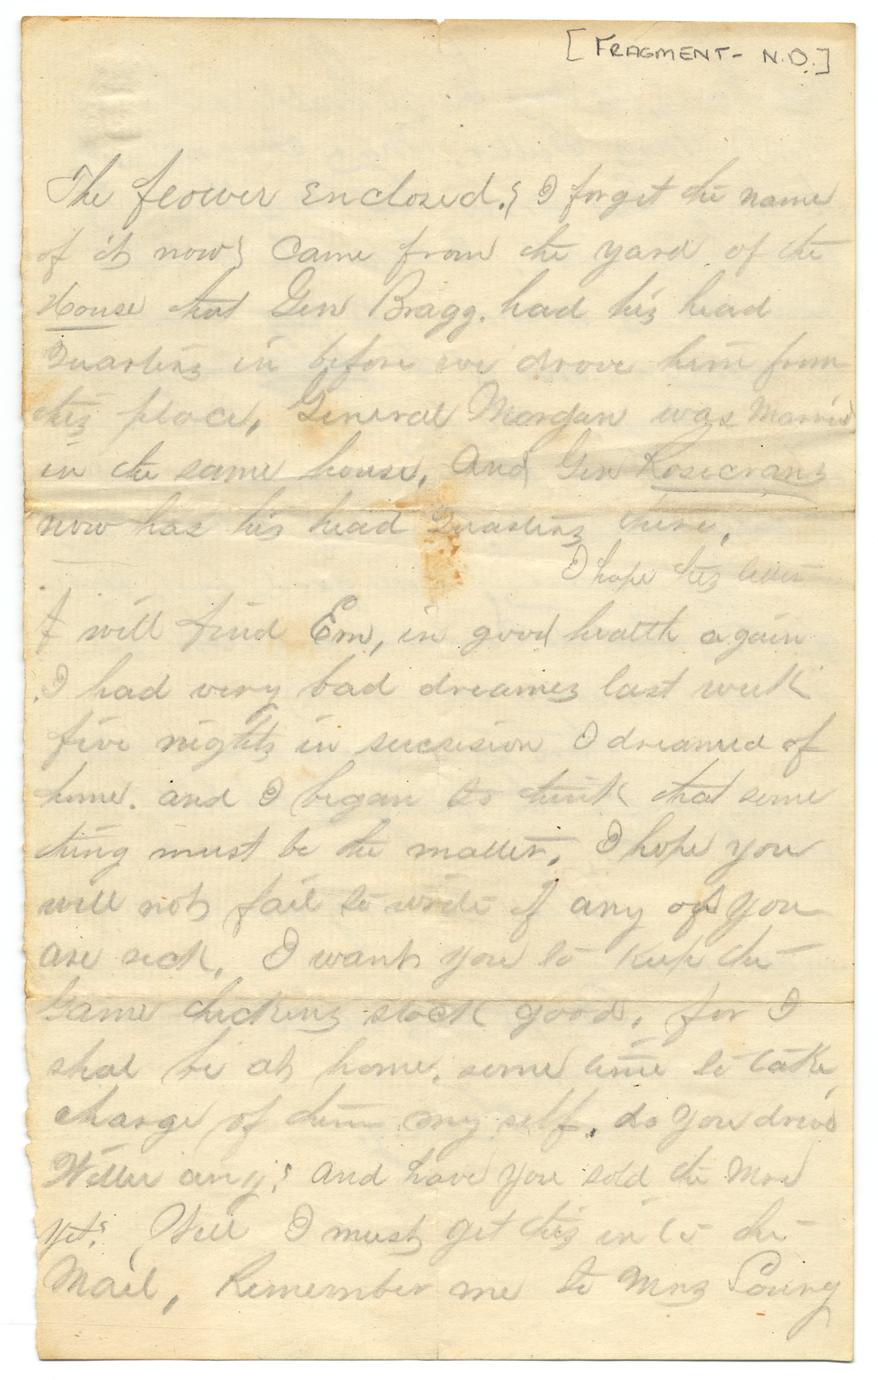 [FRAGMENT- N.D.]
The flower enclosed.{ I forget the name
of it now} Came from the yard of the
House that Gen Bragg. had his head
Quarters in before we drove him from
this place, General Morgan was Married
in the same house, And Gen Rosecrans
now has his head Quarters there,
I hope this letter
will find Em, in good health again
I had very bad dreames last week
five nights in succsision I dreamed of
home. and I began to think that some
thing must be the matter, I hope you
will not fail to write if any of you
are sick, I want you to keep the
Game chickens stock good, for I
shal be at home, some time to take
charge of them my self, do you drive
any? and have you sold the
yet? Well I must get this in to the
Mail, Remember me to Mrs